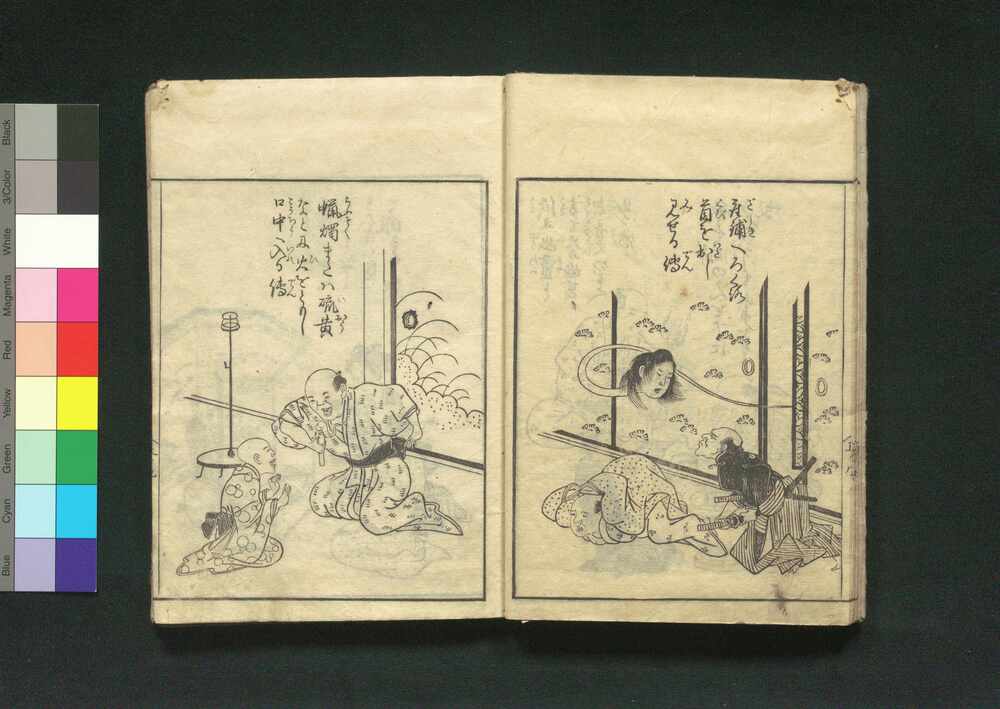 座鋪へろくろ
首を出し
見せる傳
蝋燭または硫黄
などに火をともし
口中へ入る傳
Black
3/Color
White
Magenta
Red
Yellow
Green
Cyan
Blue